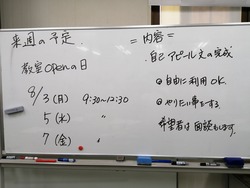 来週の予定.
教室openの日
8/3(月) 9:30~12:30
5(水) 〃
7(金) 〃
=内容=
・自己アピール文の完成
◎自由に利用OK.
◎やりたい事をする.
希望者は面談もします.